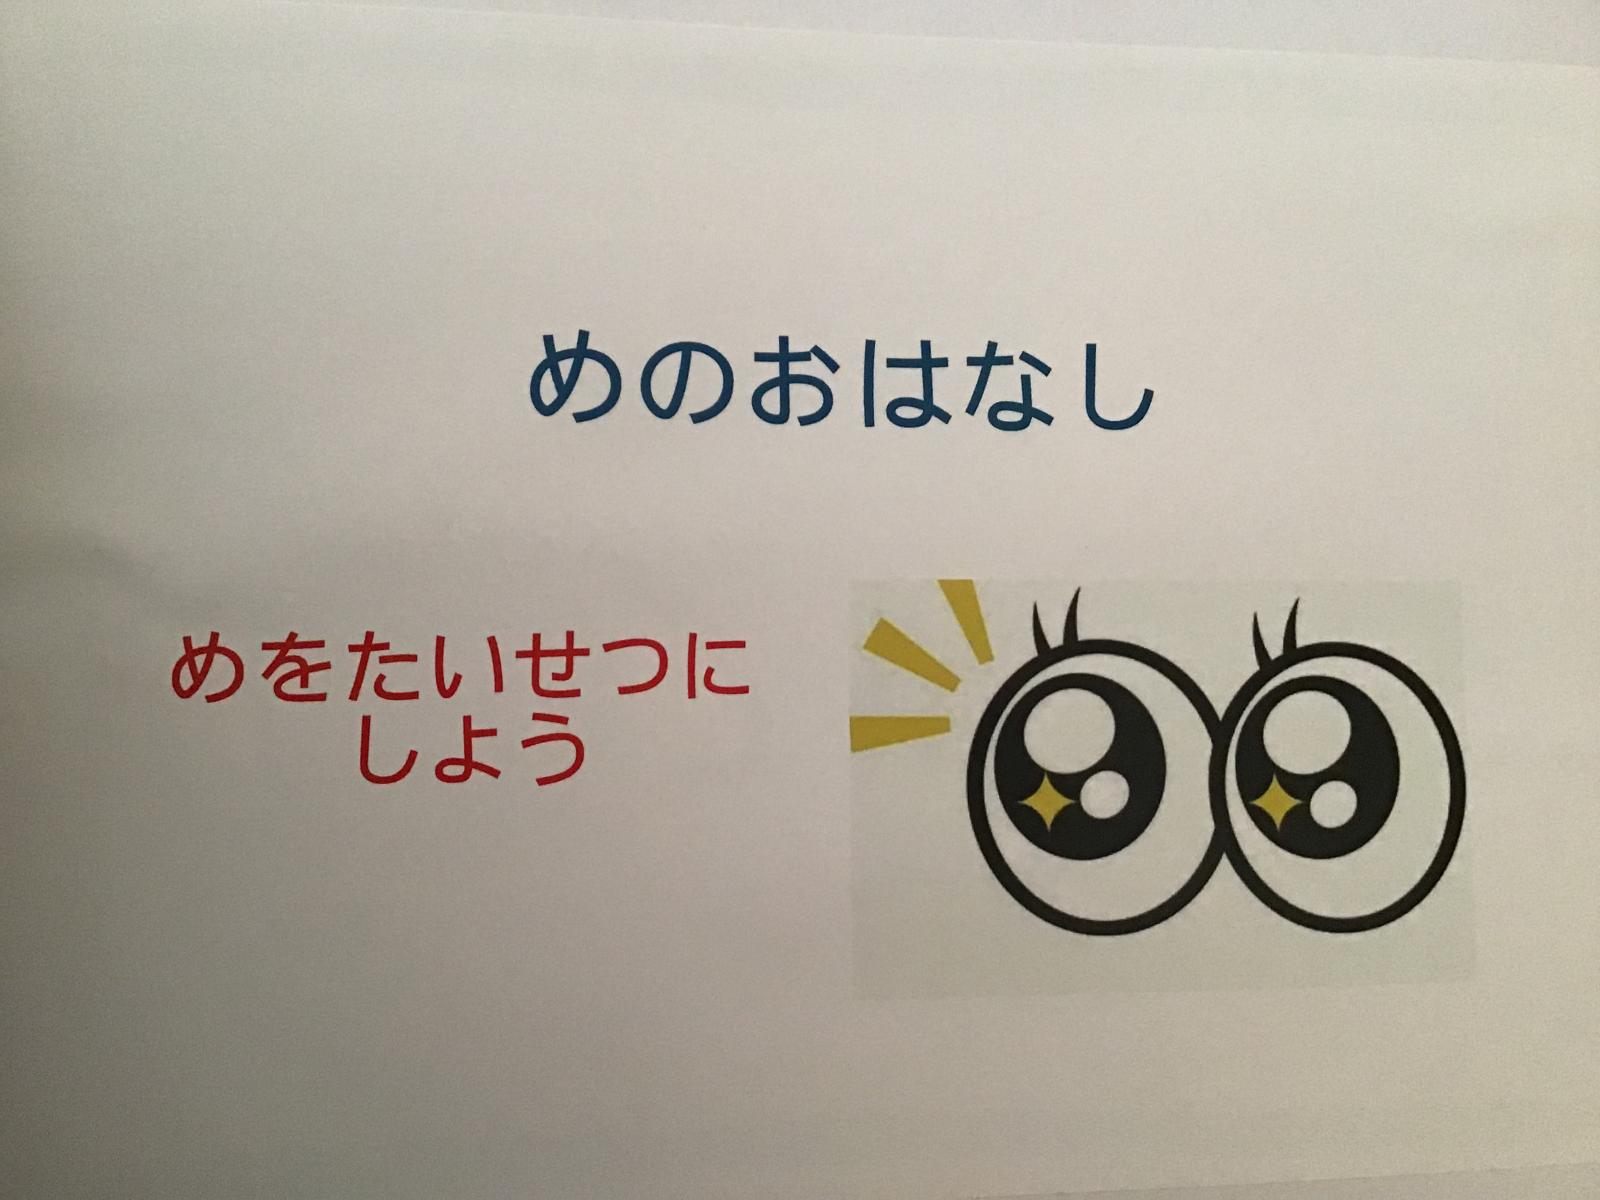 めのおはなし
めをたいせつに
しよう